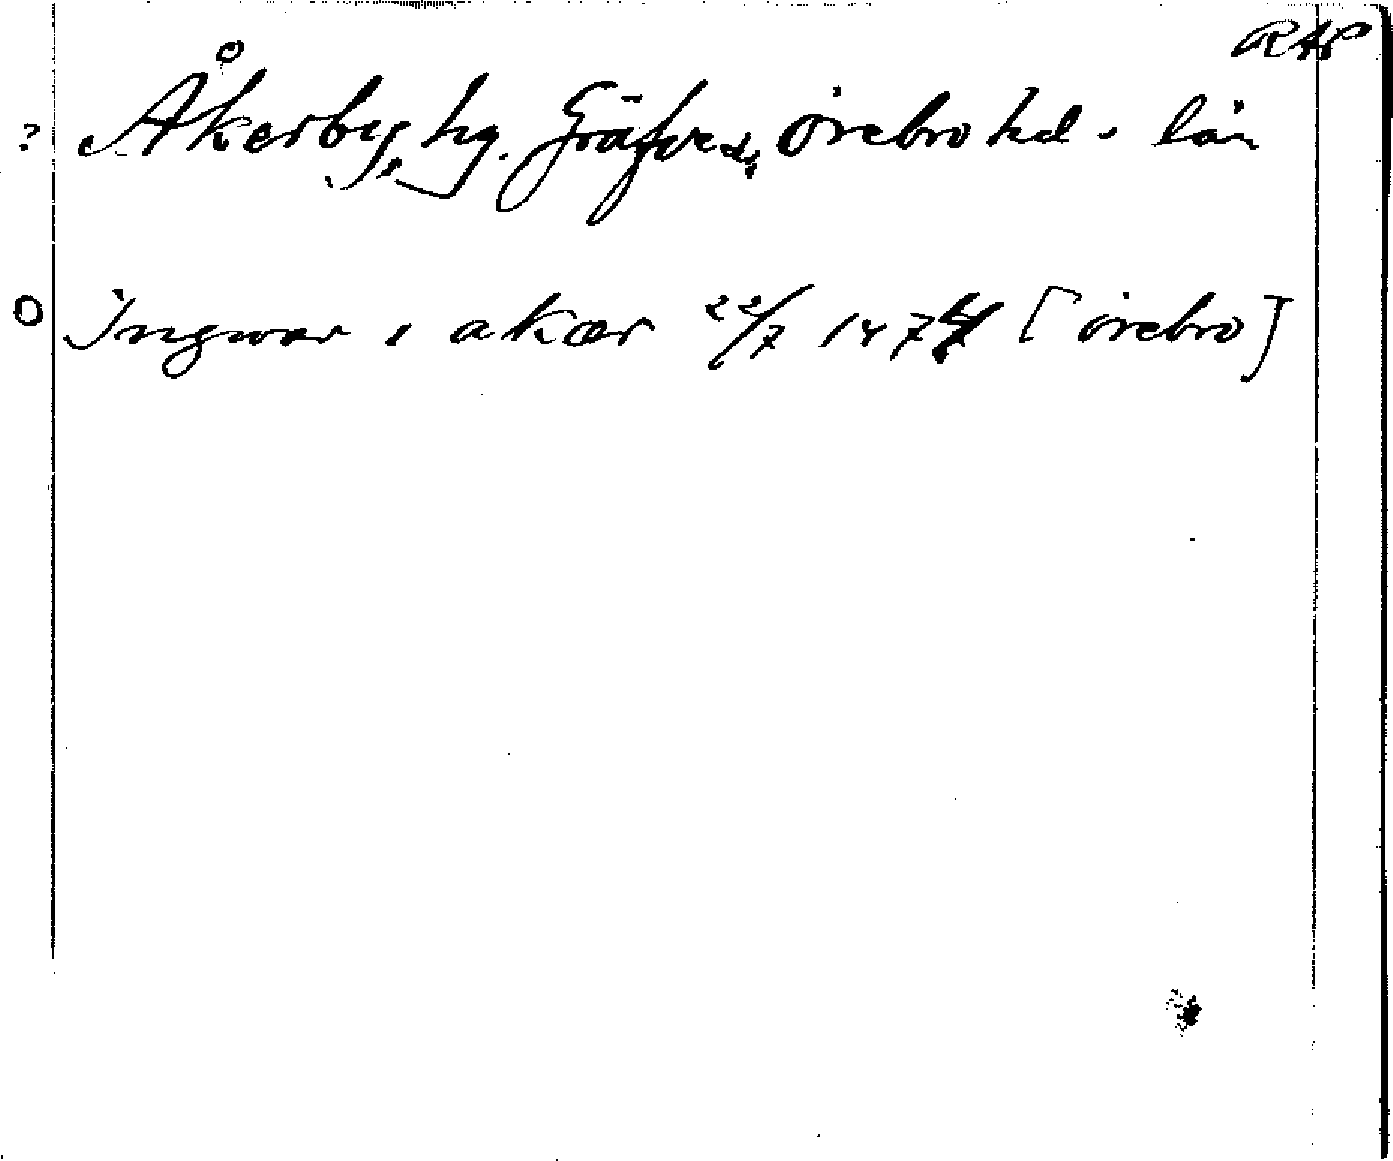 RAP
? Åkerby, hg. Gräfve sn, Örebro hd. län
O Ingwar i akær 22/7 1474 [Örebro]